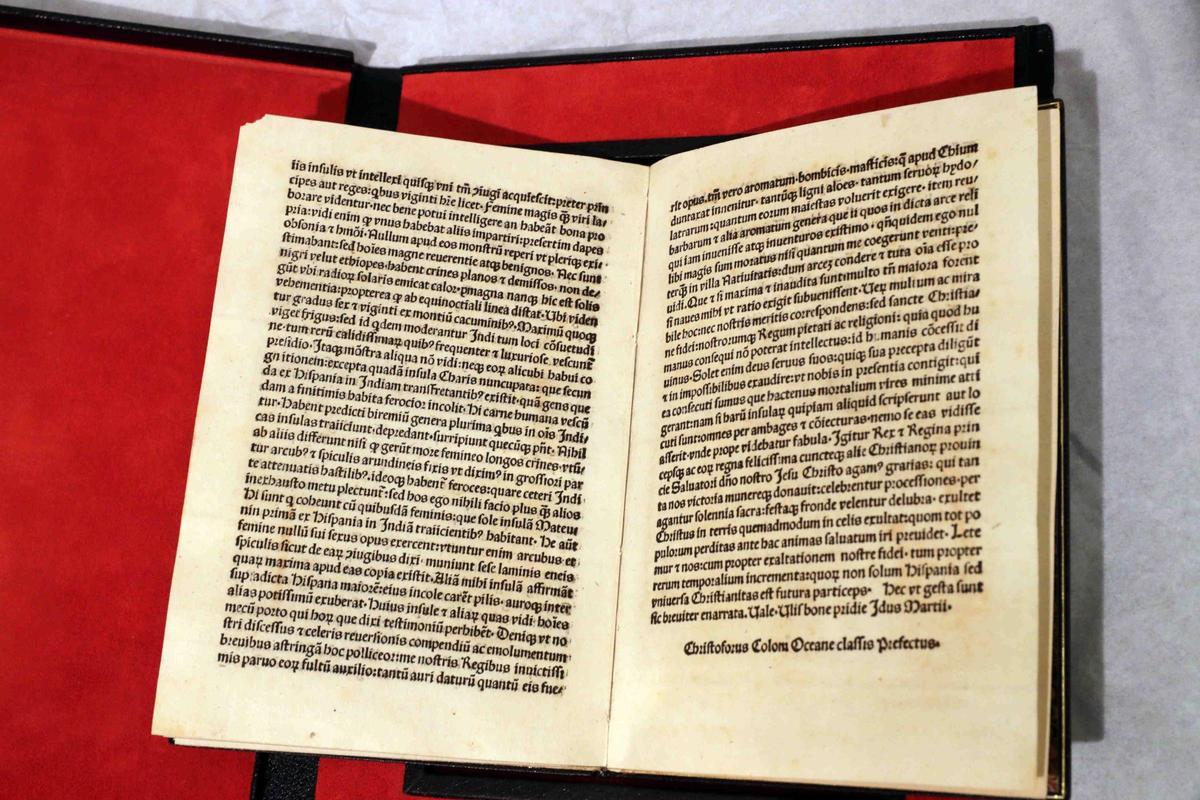 iis insulis vt intellexi quisqȝ vni tm̄ ꝯiugi acquiescit: preter prin
cipes aut reges: qbus viginti hr̄e licet. Femine magis qȝ̄ viri la/
borare videntur. nec bene potui intelligere an habeāt bona pro
pria: vidi enim ꝙ vnus habebat aliis impartiri: presertim dapes
obsonia ⁊ hmōi. Nullum apud eos monstrū reperi vt pleriqȝ exi
stimabant: sed hoīes magne reuerentie atqȝ benignos. Nec sunt
nigri velut ethiopes. habent crines planos ⁊ demissos. non de/
gūt vbi radioꝝ solaris emicat calor. pmagna nanqȝ hic est solis
vehementia: propterea ꝙ ab equinoctiali linea distat. Vbi viden
tur gradus sex ⁊ viginti ex montiū cacuminibꝰ. Maximū quoqȝ
viget frigus: sed id qdem moderantur Indi tum loci cōsuetudi
ne. tum rerū calidissimaꝝ quibꝰ frequenter ⁊ luxuriose vescunt̄
presidio. Itaqȝ mōstra aliqua nō vidi: neqȝ eoꝝ alicubi habui co
gnitionem: excepta quadā insula Charis nuncupata: que secun
da ex Hispania in Indiam transfretantibꝰ existit. quā gens que
dam a finitimis habita ferocior incolit. Hi carne humana vescū
tur. Habent predicti biremiū genera plurima qbus in oīs Indi/
cas insulas traiiciunt. depredant. surripiunt quecūqȝ pn̄t. Nihil
ab aliis differunt nisi ꝙ gerūt more femineo longos crines. vtū/
tur arcubꝰ ⁊ spiculis arundineis fixis vt diximꝰ in grossiori par
te attenuatis hastilibꝰ. ideoqȝ habent̄ feroces: quare ceteri Indi
inexhausto metu plectunt̄: sed hos ego nihili facio plus qȝ alios
Hi sunt q coheunt cū quibusdā feminis: que sole insulā Mateu
nin primā ex Hispania in Indiā traiicientibꝰ habitant. He aūt
femine nullū sui sexus opus exercent: vtuntur enim arcubus et
spiculis sicut de eaꝝ ꝯiugibus dixi. muniunt sese laminis eneis
quaꝝ maxima apud eas copia existit. Aliā mihi insulā affirmāt
supradicta Hispana maiorē: eius incole carēt pilis. auroqȝ inter
alias potissimū exuberat. Huius insule ⁊ aliaꝝ quas vidi hoīes
mecū porto qui hoꝝ que dixi testimoniū perhibēt. Deniqȝ vt no
stri discessus ⁊ celeris reuersionis compendiū ac emolumentum
breuibus astringā hoc polliceor: me nostris Regibus inuictissi
mis paruo eoꝝ fultū auxilio: tantū auri daturū quantū eis fue/
rīt opus. tm̄ vero aromatum. bombicis. masticis: q̄ apud Chium
duntaxat inuenitur. tantūqȝ ligni aloes. tantum seruoꝝ hydo/
latrarum: quantum eorum maiestas voluerit exigere. item reu/
barbarum ⁊ alia aromatum genera que ii quos in dicta arce reli
qui iam inuenisse atqȝ inuenturos existimo. qn̄quidem ego nul
libi magis sum moratus nisi quantum me coegerunt venti: pre/
terqȝ̄ in villa Natiuitatis: dum arceꝫ condere ⁊ tuta oīa esse pro
uidi. Que ⁊ si maxima ⁊ inaudita sunt: multo tn̄ maiora forent
si naues mihi vt ratio exigit subuenissent. Veꝝ multum ac mira
bile hoc: nec nostris meritis correspondens: sed sancte Christia/
ne fidei: nostrorumqȝ Regum pietati ac religioni: quia quod hu
manus consequi nō poterat intellectus: id humanis cōcessit di
uinus. Solet enim deus seruos suos: quiqȝ sua precepta diligūt
⁊ in impossibilibus exaudire: vt nobis in presentia contigit: qui
ea consecuti sumus que hactenus mortalium vires minime atti
gerant: nam si haꝝ insulaꝝ quipiam aliquid scripserunt aut lo
cuti sunt: omnes per ambages ⁊ cōiecturas. nemo se eas vidisse
asserit. vnde prope videbatur fabula. Igitur Rex ⁊ Regina prin
cepsqȝ ac eoꝝ regna felicissima cuncteqȝ alie Christianoꝝ prouin
cie Saluatori dn̄o nostro Jesu Christo agamꝰ gratias: qui tan
ta nos victoria munereqȝ donauit: celebrentur processiones. per
agantur solennia sacra: festaqȝ fronde velentur delubra. exultet
Christus in terris quemadmodum in celis exultat: quom tot po
pulorum perditas ante hac animas saluatum iri preuidet. Lete
mur ⁊ nos: cum propter exaltationem nostre fidei. tum propter
rerum temporalium incrementa: quoꝝ non solum Hispania sed
vniuersa Christianitas est futura particeps. Hec vt gesta sunt
sic breuiter enarrata. Vale. Vlisbone pridie Idus Martii.
Christoforus Colom Oceane classis Prefectus.